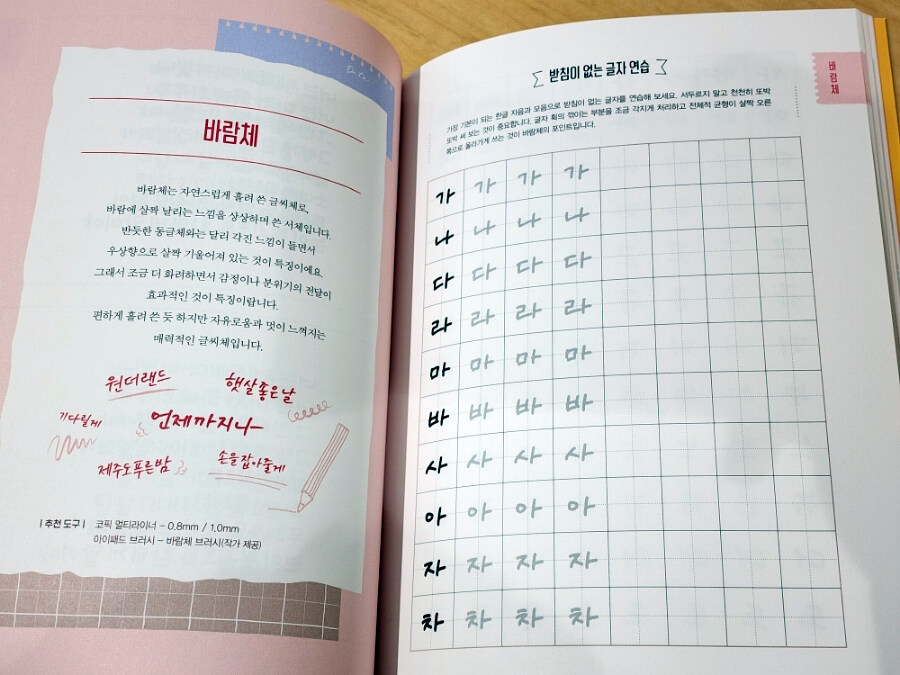 바람체
바람체는 자연스럽게 흘려 쓴 글씨체로,
바람에 살짝 날리는 느낌을 상상하며 쓴 서체입니다.
반듯한 둥글체와는 달리 각진 느낌이 들면서
우상향으로 살짝 기울어져 있는 것이 특징이에요.
그래서 조금 더 화려하면서 감정이나 분위기의 전달이
효과적인 것이 특징이랍니다.
편하게 흘려 쓴 듯 하지만 자유로움과 멋이 느껴지는
매력적인 글씨체입니다.
원더랜드
햇살좋은날
기다릴게
언제까지나
제주도푸른밤
손을잡아줄게
| 추천 도구 | 코픽 멀티라이너 - 0.8mm / 1.0mm
아이패드 브러시 - 바람체 브러시(작가 제공)
받침이 없는 글자 연습
바람체
가장 기본이 되는 한글 자음과 모음으로 받침이 없는 글자를 연습해 보세요. 서두르지 말고 천천히 또박
또박 써 보는 것이 중요합니다. 글자 획의 꺾이는 부분을 조금 각지게 처리하고 전체적 균형이 살짝 오른
쪽으로 올라가게 쓰는 것이 바람체의 포인트입니다.
가 가 가 가
나 나 나 나
다 다 다 다
라 라 라 라
마 마 마 마
바 바 바 바
사 사 사 사
아 아 아 아
자 자 자 자
차 차 차 차